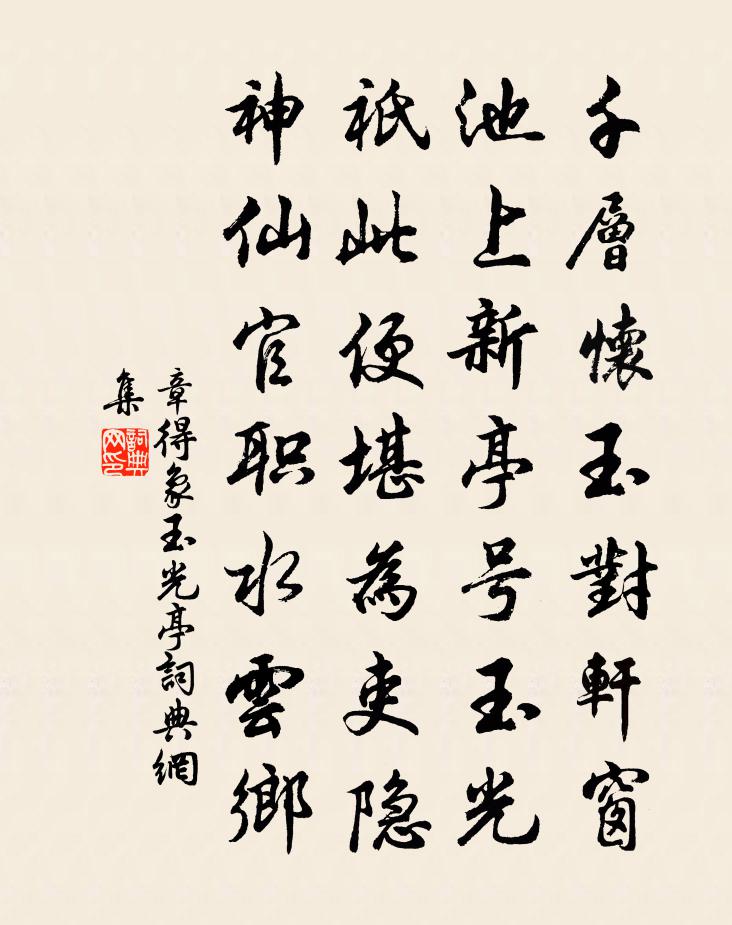 千層懷玉對軒窗
池上新亭号玉光
祇此便堪為吏隐
神仙官职水雲鄉
章得象玉光亭詞典網
集
詞典网印